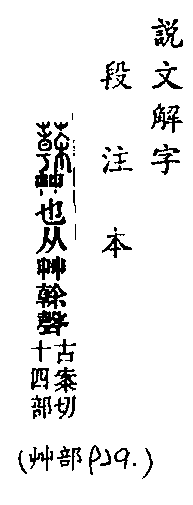 説文解字
段注本
艸也从艸榦聲
古案切
十四部
(艸部 P29.)